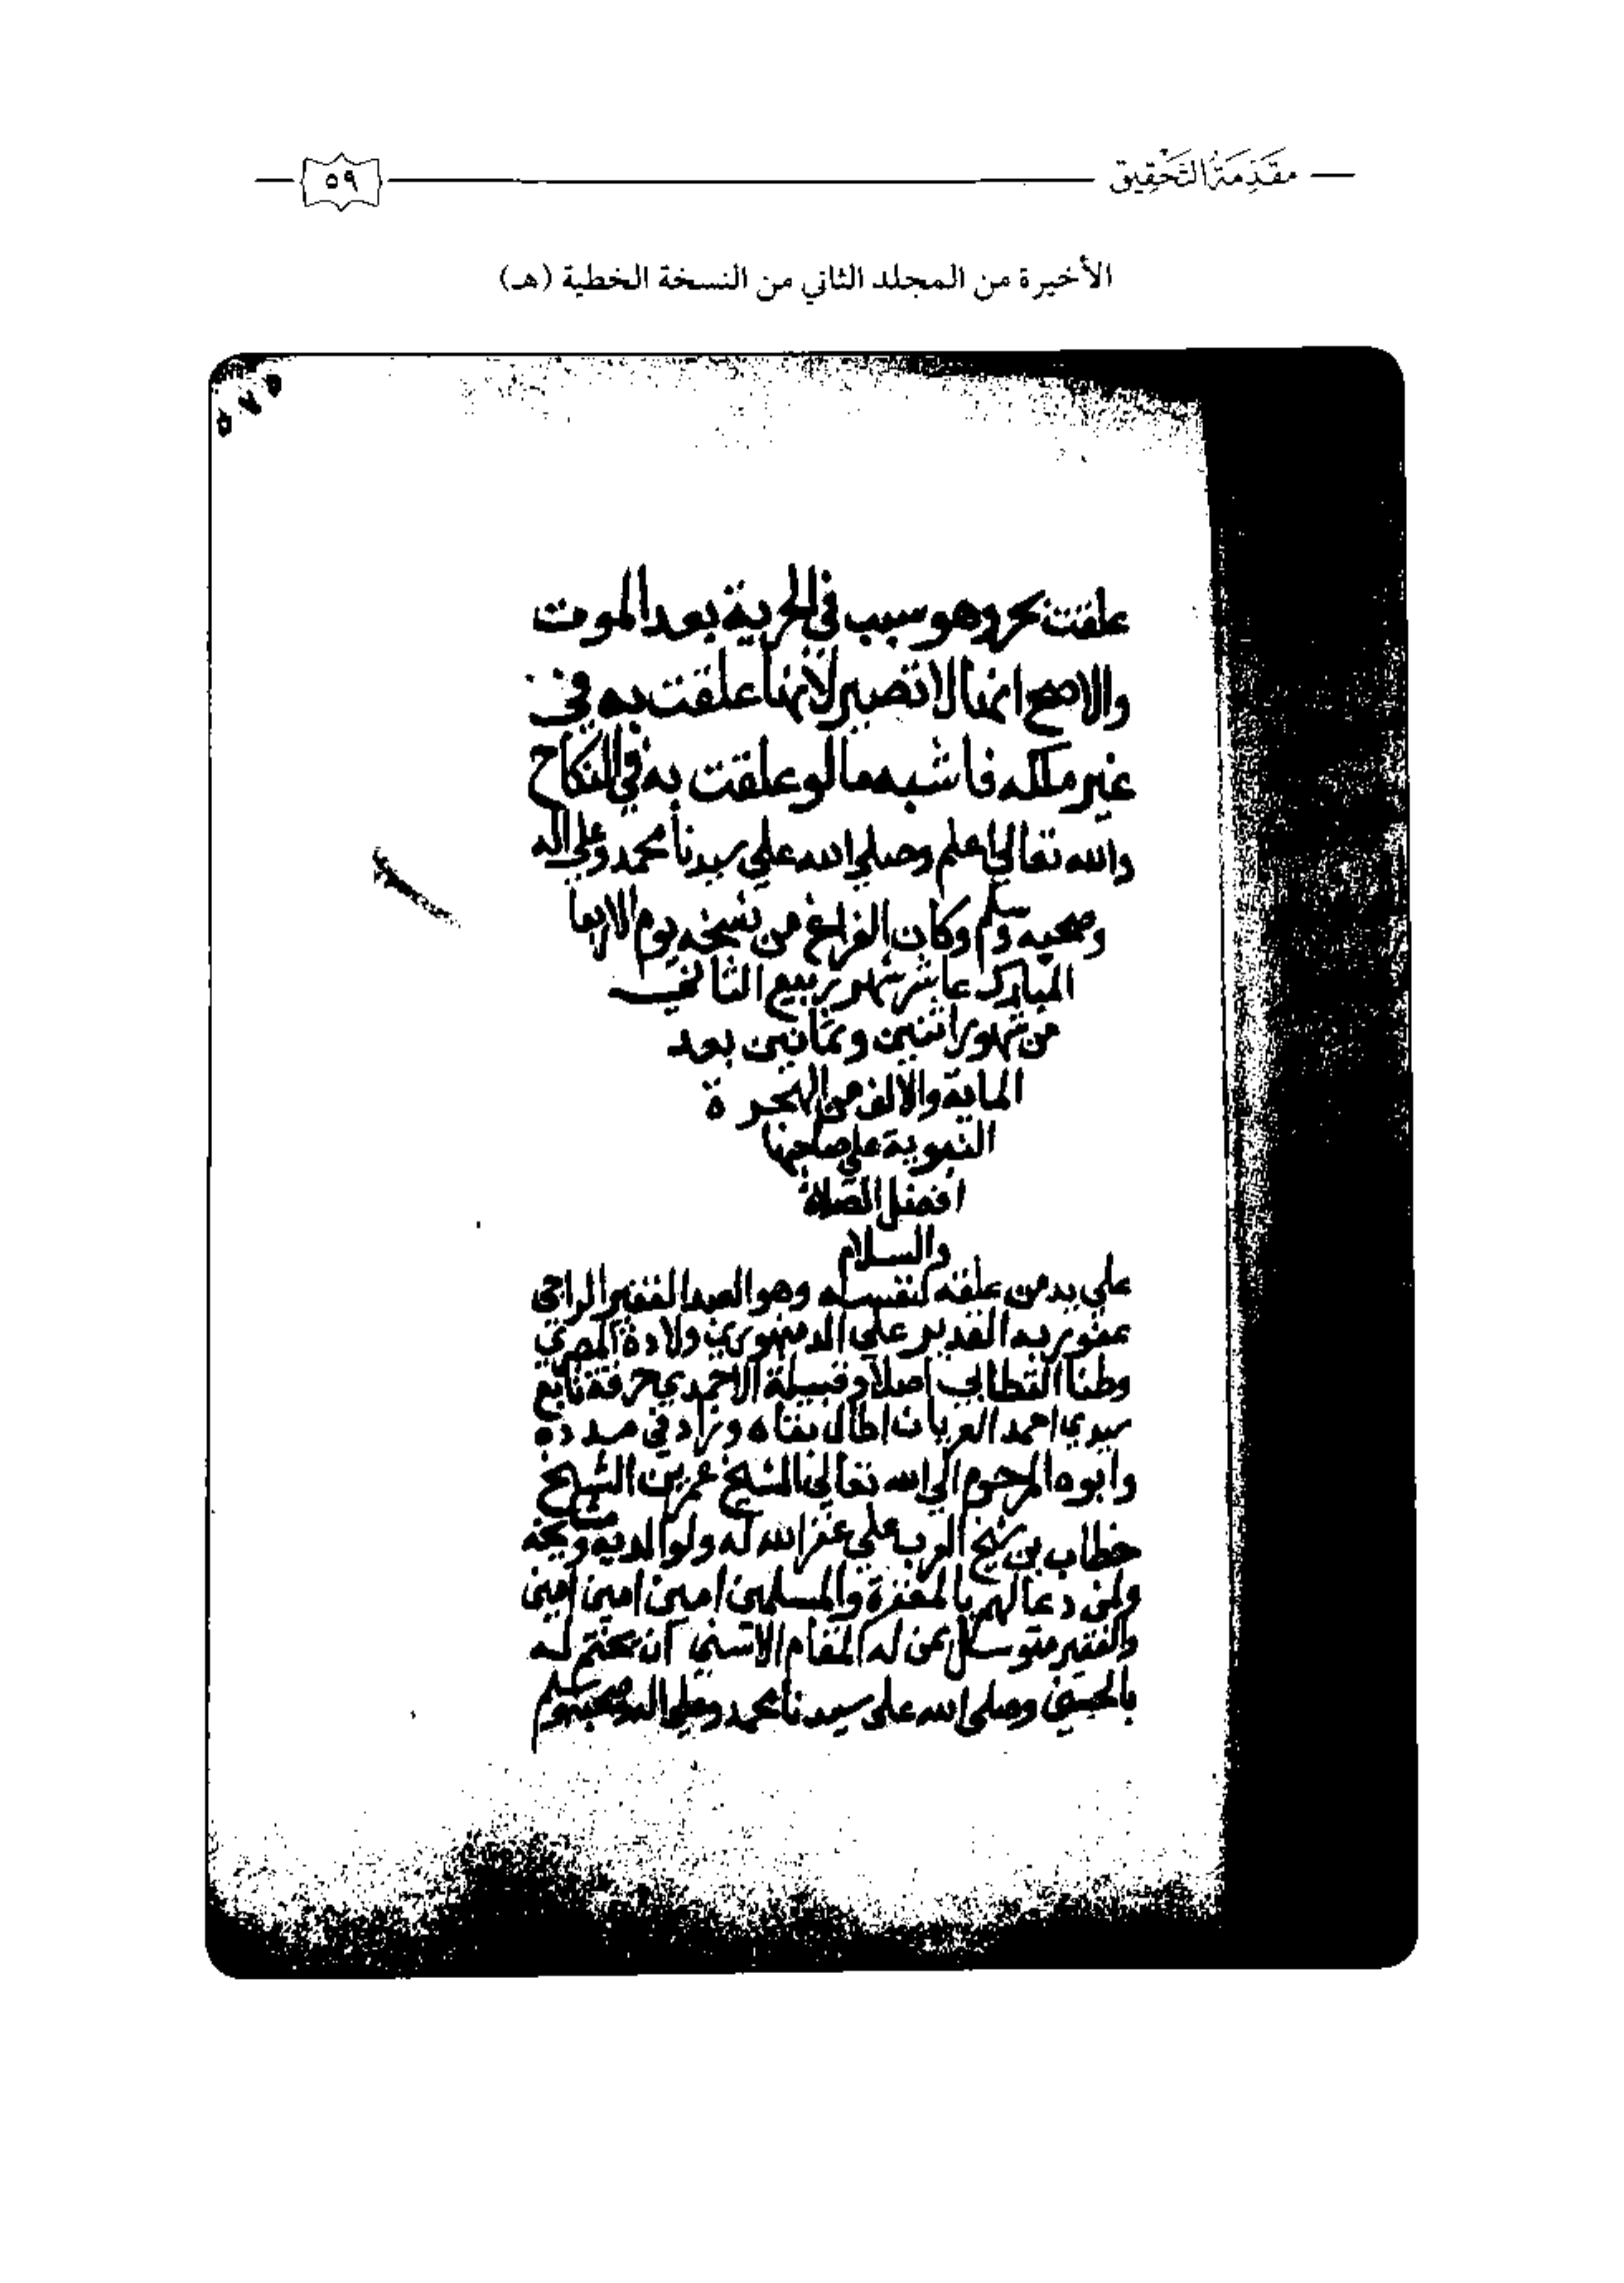 مقدمة التحقيق
٥٩
الأخيرة من المجلد الثاني من النسخة الخطية (هـ)
علقت بحر وهو سبب في الحرية بعد الموت
والاصح انها لا تصير لانها علقت به في
غير ملكه فاشبه ما لو علقت به في النكاح
والله تعالي اعلم وصلي الله علي سيدنا محمد وعلي اله
وصحبه وسلم وكان الفراغ من نسخه يوم الاربعا
المبارك عاشر شهر ربيع الثاني
من شهور اثنين وثمانين بعد
الماية والالف من الهجرة
النبوية علي صاحبها
افضل الصلاة
والسلام
علي يد من علقه لنفسه وهو العبد الفقير الراجي
عفو ربه القدير علي الدمنهوري ولادة المصري
وطنا الخطابي اصلا وقبيلة الاحمدي حرفة تابع
سيدي احمد العريان اطال بقاه وزاد في مدده
وابوه المرحوم الي الله تعالي الشيخ عمر بن الشيخ
خطاب بن شيخ العرب علي غفر الله له ولوالديه ومشايخه
ولمن دعا لهم بالمغفرة والمسلمين امين امين امين
والفقير متوسل بمن له المقام الاسني ان يختم له
بالحسني وصلي الله على سيدنا محمد وعلى اله وصحبه وسلم